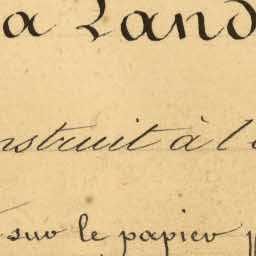 a Land
nstruit à l'
sur le papier